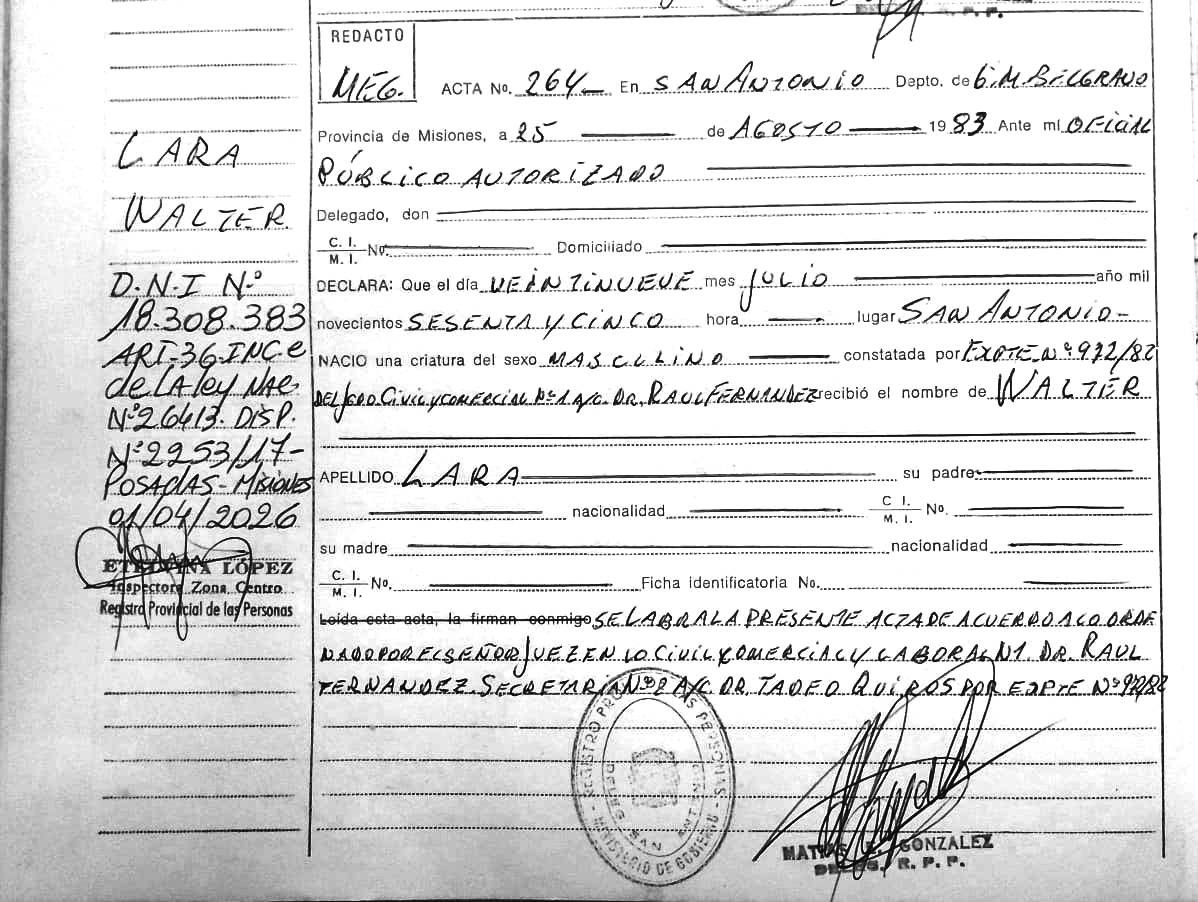 REDACTO
MEG.
ACTA No. 264 En SAN ANTONIO Depto. de G.M. BELGRANO
Provincia de Misiones, a 25 de AGOSTO 1983 Ante mí OFICIAL
PÚBLICO AUTORIZADO
Delegado, don
C. I.
M. I. No. Domiciliado
DECLARA: Que el día VEINTINUEVE mes JULIO año mil
novecientos SESENTA Y CINCO hora lugar SAN ANTONIO-
NACIO una criatura del sexo MASCULINO constatada por EXPTE. Nº 972/82
DEL JGDO Civil y COMERCIAL Nº 1 A/C. DR. RAUL FERNANDEZ recibió el nombre de WALTER
APELLIDO LARA su padre
nacionalidad C. I. M. I. No.
su madre nacionalidad
C. I.
M. I. No. Ficha identificatoria No.
Leída esta acta, la firman conmigo SE LABRA LA PRESENTE ACTA DE ACUERDO A LO ORDE
NADO POR EL SEÑOR JUEZ EN LO CIVIL Y COMERCIAL Y LABORAL N1. DR. RAUL
FERNANDEZ. SECRETARIA Nº 2 A/C. DR. TADEO QUIROS POR EXPTE Nº 972/82
LARA
WALTER
D.N.I Nº
18.308.383
ART-36 INC e
de LA ley NAC
Nº 26413. DISP.
Nº 2253/17-
POSADAS-MISIONES
01/04/2026
LÓPEZ
Inspectora Zona Centro
Registro Provincial de las Personas
REGISTRO PROV LAS PERSONAS
MINISTERIO DE GOBIERNO
SAN ANTONIO
GONZALEZ
R. P. P.